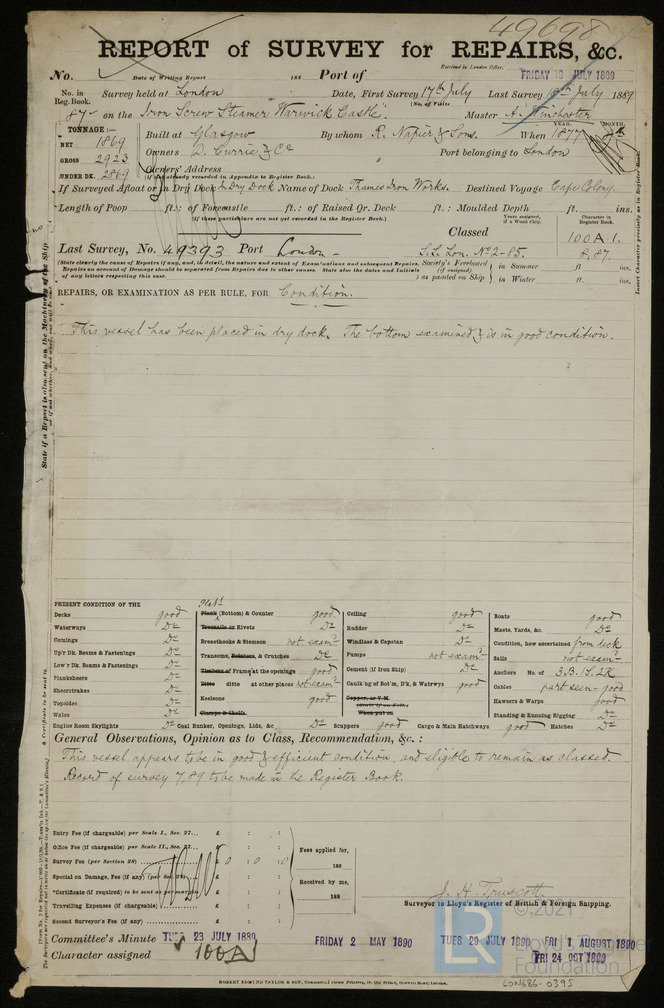 49698
REPORT of SURVEY for REPAIRS, &c.
Received in London Office,
No. Date of Writing Report 188 Port of FRIDAY 19 JULY 1889
No. in Reg. Book. Survey held at London Date, First Survey 17th July Last Survey 18th July 1889
(No. of Visits
87 on the Iron Screw Steamer "Warwick Castle". Master A. Winchester
TONNAGE:- YEAR. MONTH.
NET 1869 Built at Glasgow By whom R. Napier & Sons. When 1877
GROSS 2923 Owners D. Currie & Co Port belonging to London
UNDER DK. 2869 Owners' Address
(if not already recorded in Appendix to Register Book.)
If Surveyed Afloat or in Dry Dock In Dry Dock Name of Dock Thames Iron Works. Destined Voyage Cape Colony
Length of Poop ft.: of Forecastle ft.: of Raised Qr. Deck ft.: Moulded Depth ft. ins.
(If these particulars are not yet recorded in the Register Book.)
Years assigned, if a Wood ship. Character in Register Book.
Classed 100A.1.
Last Survey, No. 49393 Port London - S.S. Lon. No 2-85. 8,87.
(State clearly the cause of Repairs if any, and, in detail, the nature and extent of Examinations and subsequent Repairs. Repairs on account of Damage should be separated from Repairs due to other causes. State also the dates and Initials of any letters respecting this case.
Society's Freeboard (if assigned) as painted on Ship in Summer ft. ins.
in Winter ft. ins.
REPAIRS, OR EXAMINATION AS PER RULE, FOR Condition.
This vessel has been placed in dry dock. The bottom examined & is in good condition.
PRESENT CONDITION OF THE
Decks good
Waterways Do
Comings Do
Up'r Dk. Beams & Fastenings Do
Low'r Dk. Beams & Fastenings Do
Planksheers Do
Sheerstrakes Do
Topsides Do
Wales Do
Engine Room Skylights Do
Plate
Plank (Bottom) & Counter good
Treenails or Rivets Do
Breasthooks & Stemson not examd
Transoms, Pointers, & Crutches Do
Timbers of Frame at the openings good
Ditto ditto at other places not examd
Keelsons good
Clamps & Shelfs
Coal Bunker, Openings, Lids, &c. Do
Ceiling good
Rudder Do
Windlass & Capstan Do
Pumps not examd
Cement (if Iron Ship) Do
Caulk'ng of Bot'm, D'k, & Watrwys good
Copper, or Y.M.
When put on
Scuppers good
Cargo & Main Hatchways good
Boats good
Masts, Yards, &c. Do
Condition, how ascertained from deck
Sails not examd
Anchors No. of 3.B.1S.2K
Cables part seen - good
Hawsers & Warps good
Standing & Running Rigging Do
Hatches Do
General Observations, Opinion as to Class, Recommendation, &c.:
This vessel appears to be in good & efficient condition, and eligible to remain as classed.
Record of survey 7,89 to be made in the Register Book.
Entry Fee (if chargeable) per Scale I., Sec. 27... £ : :
Office Fee (if chargeable) per Scale II., Sec. 27... £ : :
Survey Fee (per Section 28) £ 0 : 0 : 0
Special on Damage, Fee (if any) (per Sec. 28) £ : :
*Certificate (if required) to be sent as per margin £ : :
Travelling Expenses (if chargeable) £ : :
Second Surveyor's Fee (if any) £ : :
Fees applied for,
188
Received by me,
188
J. H. Truscott
Surveyor to Lloyd's Register of British & Foreign Shipping.
Committee's Minute TUES 23 JULY 1889 FRIDAY 2 MAY 1890 TUES 29 JULY 1890 FRI 1 AUGUST 1890
Character assigned 100A1 FRI 24 OCT 1890
ROBERT EDMUND TAYLOR & SON,
LON686-0395
© 2021
LR
Lloyd's Register
Foundation